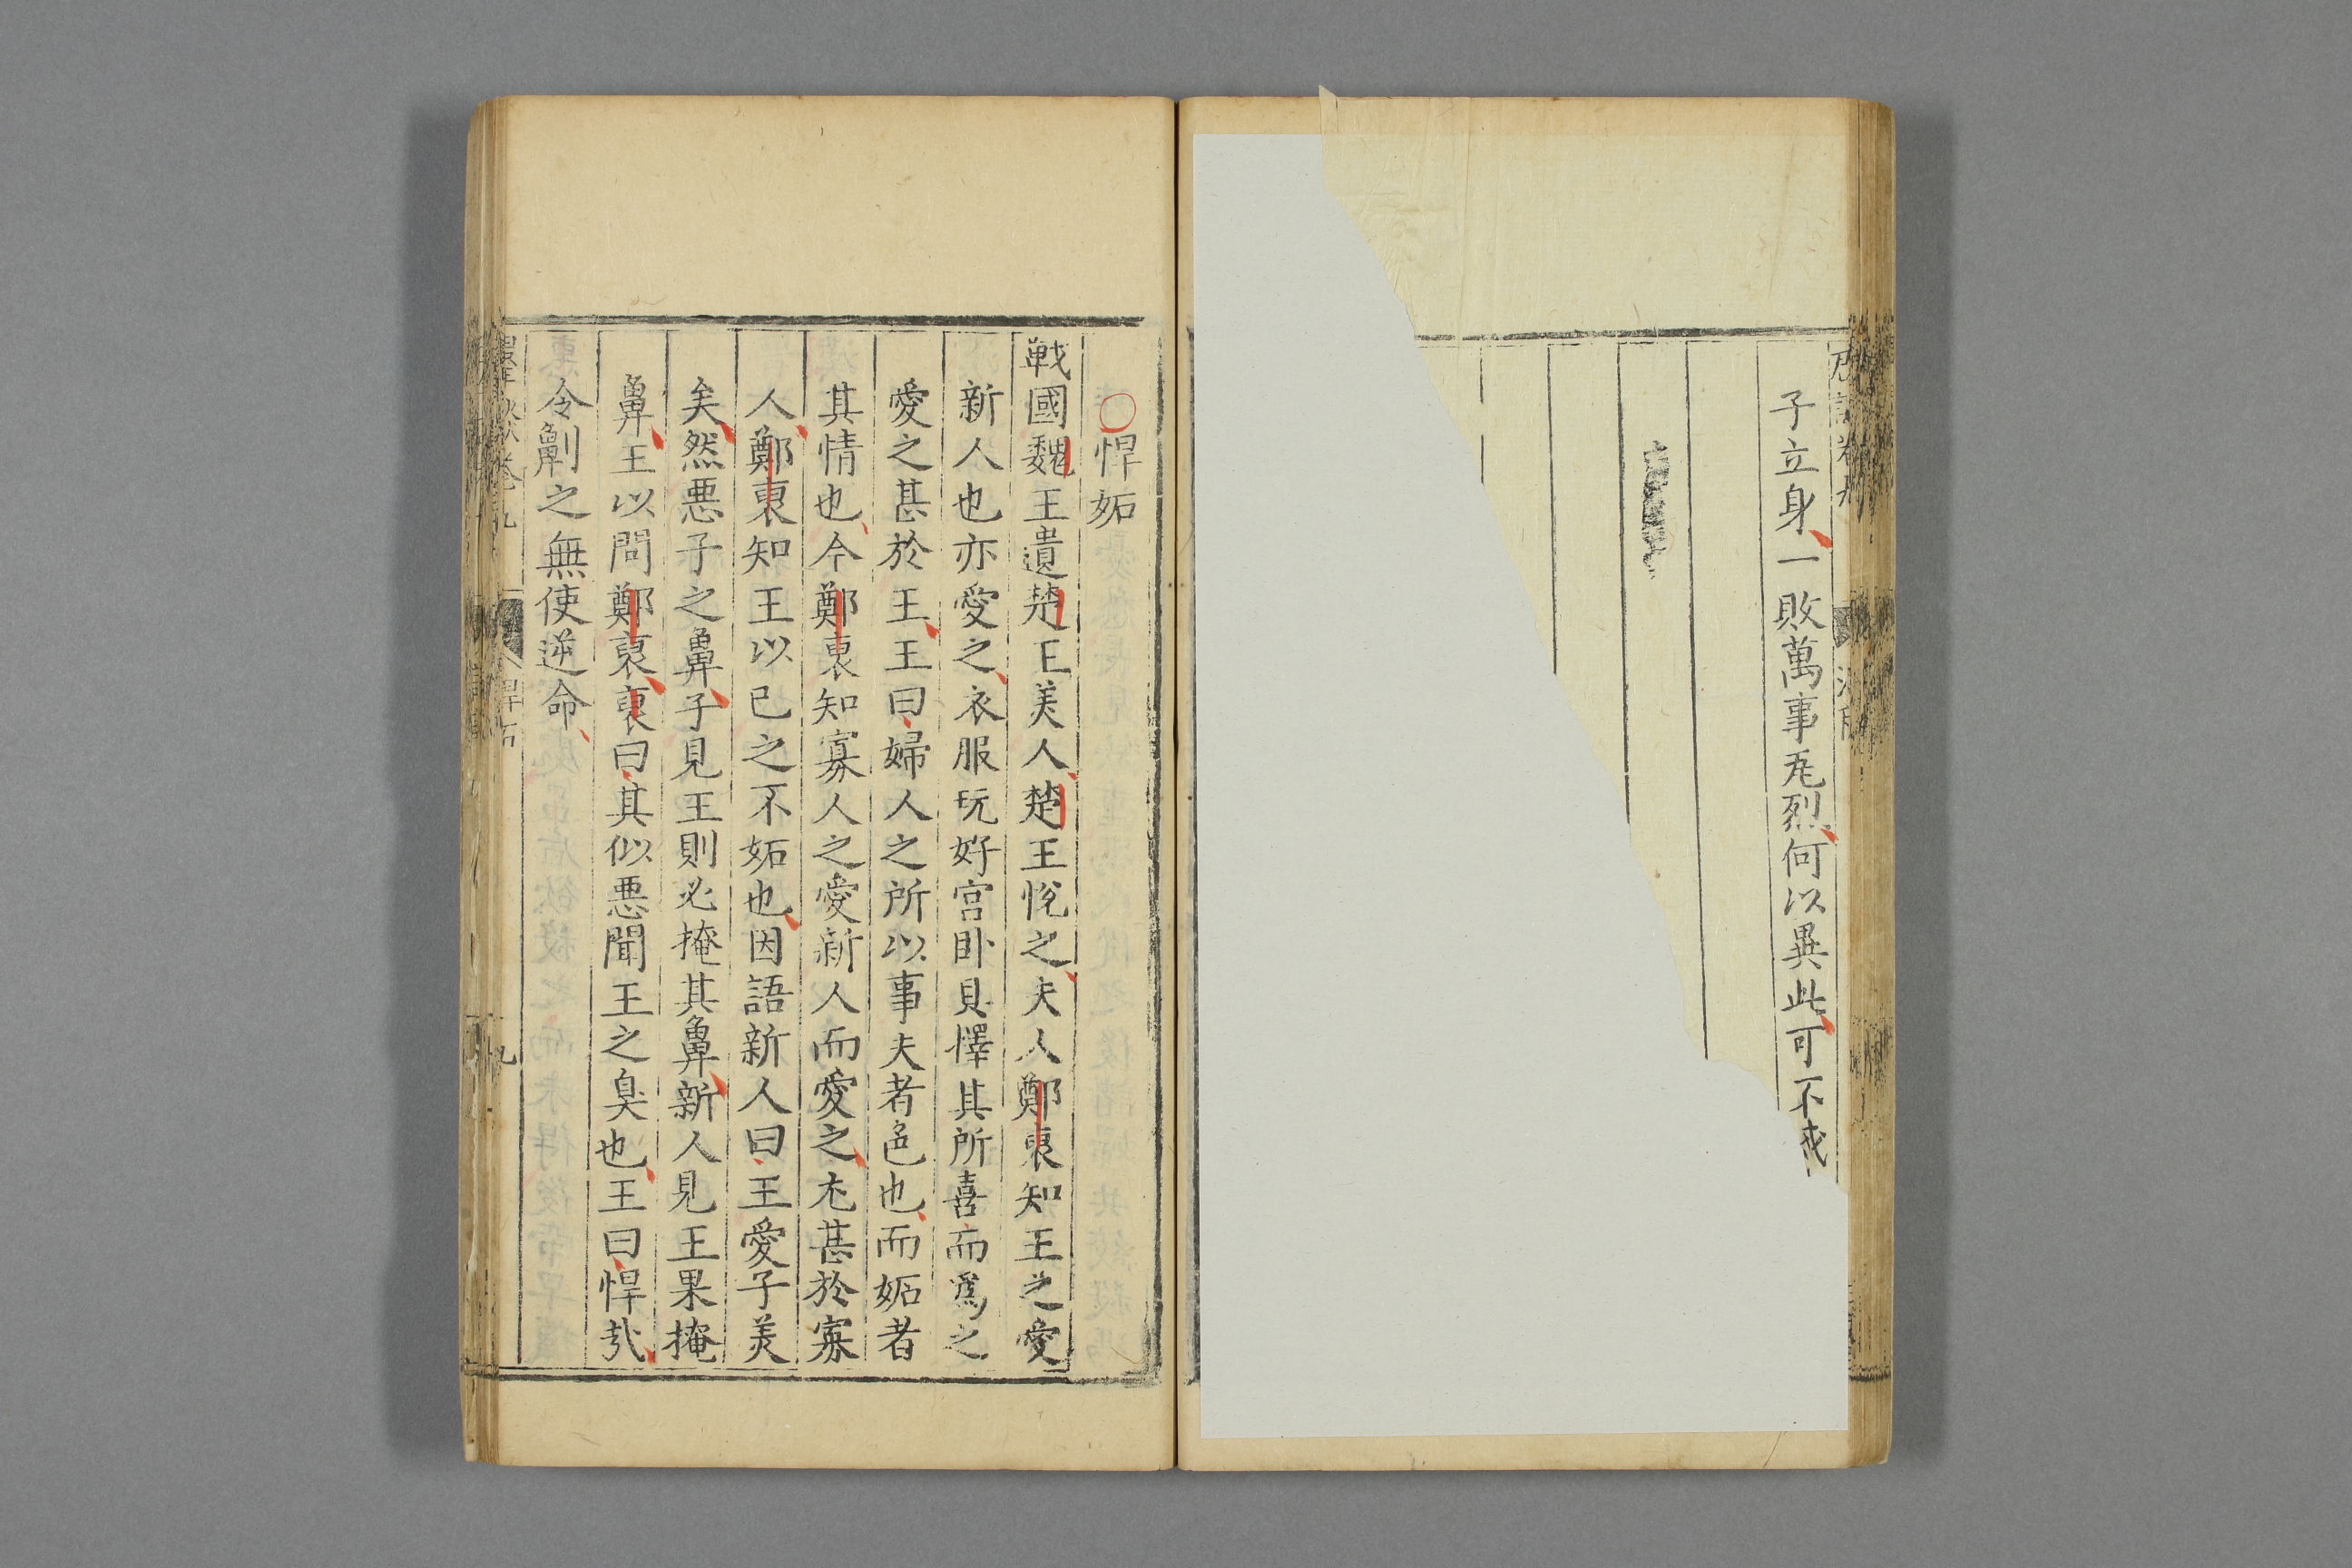 子立身一敗萬事瓦烈何以異此可不戒
○悍妬
戦國魏王遺楚王美人楚王悅之夫人鄭褏知王之愛
新人也亦愛之衣服玩好宫卧具擇其所喜而爲之
愛之甚於王王曰婦人之所以事夫者色也而妬者
其情也今鄭褏知寡人之愛新人而愛之尤甚於寡
人鄭褏知王以已之不妬也因語新人曰王愛子美
矣然惡子之鼻子見王則必掩其鼻新人見王果掩
鼻王以問鄭褏褏曰其似惡聞王之臭也王曰悍㢤
令劓之無使逆命